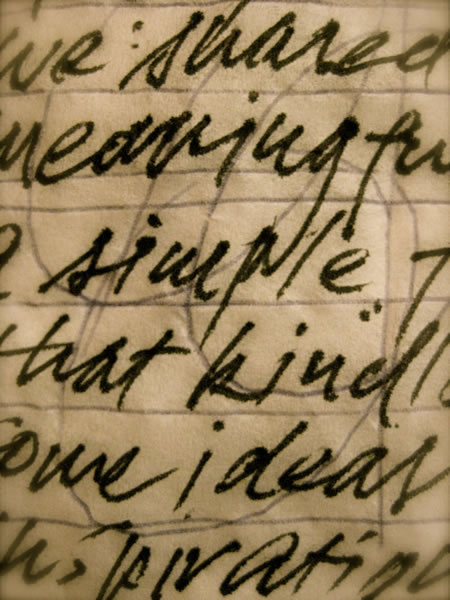 we shared
meaningfu
simple
that kindl
some ideas
inspiration